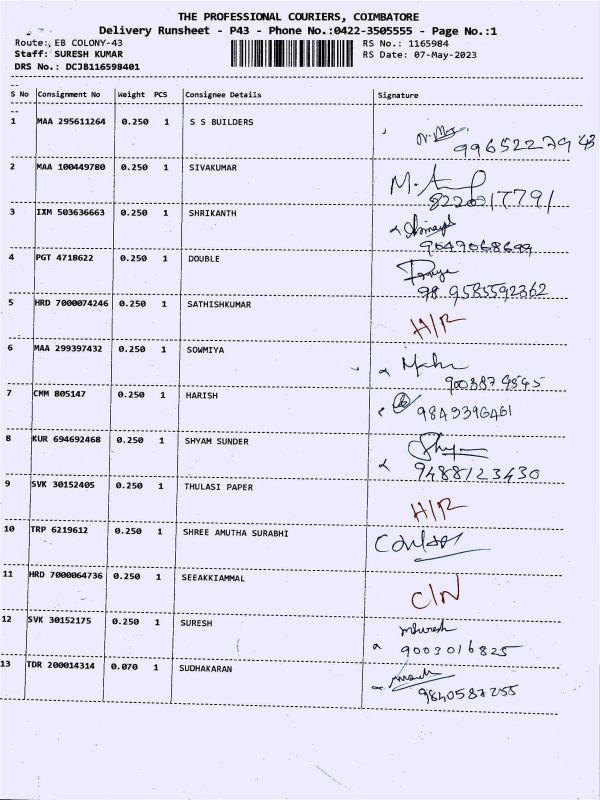 THE PROFESSIONAL COURIERS, COIMBATORE
Delivery Runsheet - P43 - Phone No.:0422-3505555 - Page No.:1
Route:, EB COLONY-43
RS No.: 1165984
Staff: SURESH KUMAR
RS Date: 07-May-2023
DRS No.: DCJB116598401
S No Consignment No Weight PCS Consignee Details Signature
1 MAA 295611264 0.250 1 S S BUILDERS
9965227943
2 MAA 100449780 0.250 1 SIVAKUMAR
3 IXM 503636663 0.250 1 SHRIKANTH
4 PGT 4718622 0.250 1 DOUBLE
98 9585592362
5 HRD 7000074246 0.250 1 SATHISHKUMAR H/R
6 MAA 299397432 0.250 1 SOWMIYA
7 CMM 805147 0.250 1 HARISH
8 KUR 694692468 0.250 1 SHYAM SUNDER
9488123430
9 SVK 30152405 0.250 1 THULASI PAPER H/R
10 TRP 6219612 0.250 1 SHREE AMUTHA SURABHI
11 HRD 7000064736 0.250 1 SEEAKKIAMMAL C/N
12 SVK 30152175 0.250 1 SURESH
9003016825
13 TDR 200014314 0.070 1 SUDHAKARAN
9840587255